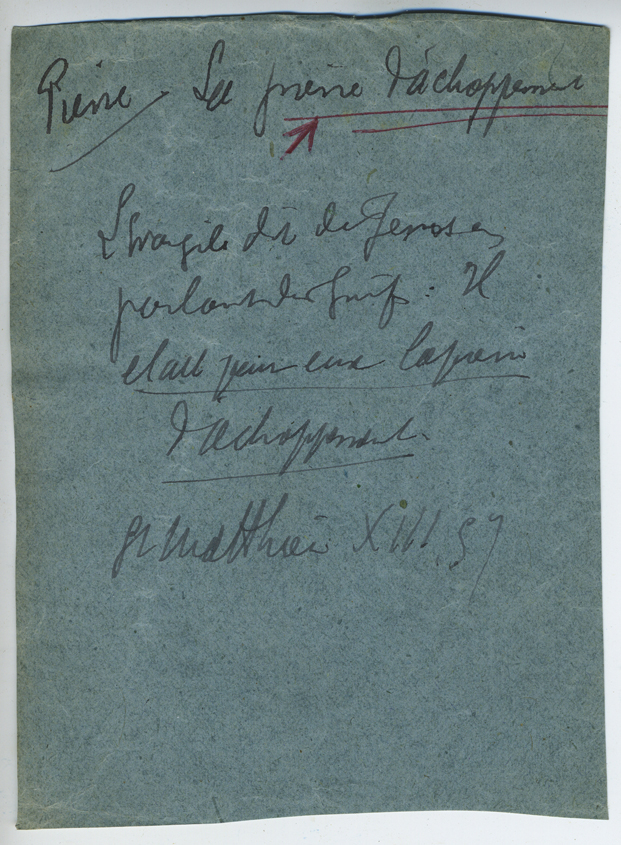 Pierre - La pierre d'achoppement
L'Evangile dit de Jesus en
parlant des Juifs : Il
etait pour eux la pierre
d'achoppement.
St Matthieu XIII. 57